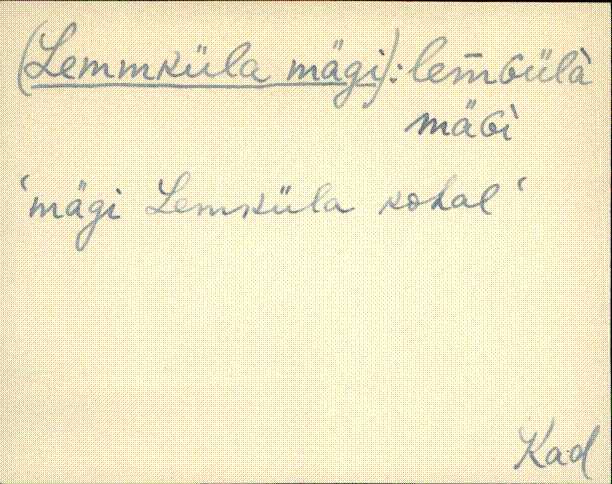 (Lemmküla mägi): lem̄Gülà
mäGì
'mägi Lemküla kohal'
Kad